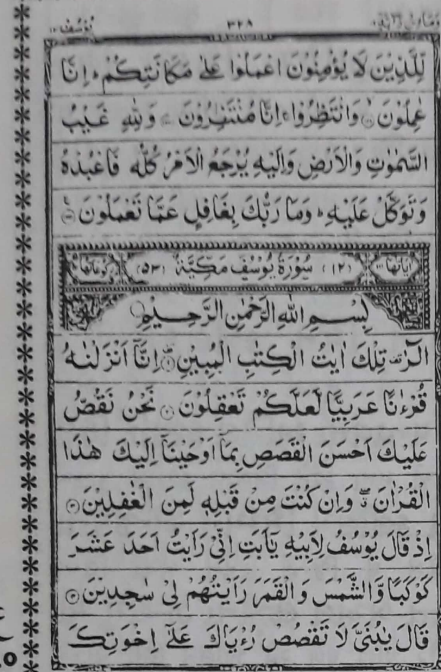 ۳۲۸
لِّلَّذِيْنَ لَا يُؤْمِنُوْنَ اعْمَلُوْا عَلٰى مَكَانَتِكُمْ ؕ اِنَّا
عٰمِلُوْنَ ۙ وَانْتَظِرُوْا ۚ اِنَّا مُنْتَظِرُوْنَ وَلِلّٰهِ غَيْبُ
السَّمٰوٰتِ وَالْاَرْضِ وَاِلَيْهِ يُرْجَعُ الْاَمْرُ كُلُّهٗ فَاعْبُدْهُ
وَتَوَكَّلْ عَلَيْهِ ؕ وَمَا رَبُّكَ بِغَافِلٍ عَمَّا تَعْمَلُوْنَ
(۱۲) سُوْرَةُ يُوْسُفَ مَكِّيَّةٌ (۵۳)
بِسْمِ اللّٰهِ الرَّحْمٰنِ الرَّحِيْمِ
الٓرٰ ۚ تِلْكَ اٰيٰتُ الْكِتٰبِ الْمُبِيْنِ اِنَّاۤ اَنْزَلْنٰهُ
قُرْءٰنًا عَرَبِيًّا لَّعَلَّكُمْ تَعْقِلُوْنَ نَحْنُ نَقُصُّ
عَلَيْكَ اَحْسَنَ الْقَصَصِ بِمَاۤ اَوْحَيْنَاۤ اِلَيْكَ هٰذَا
الْقُرْاٰنَ ۖ وَاِنْ كُنْتَ مِنْ قَبْلِهٖ لَمِنَ الْغٰفِلِيْنَ
اِذْ قَالَ يُوْسُفُ لِاَبِيْهِ يٰۤاَبَتِ اِنِّيْ رَاَيْتُ اَحَدَ عَشَرَ
كَوْكَبًا وَّالشَّمْسَ وَالْقَمَرَ رَاَيْتُهُمْ لِيْ سٰجِدِيْنَ
قَالَ يٰبُنَيَّ لَا تَقْصُصْ رُءْيَاكَ عَلٰۤى اِخْوَتِكَ